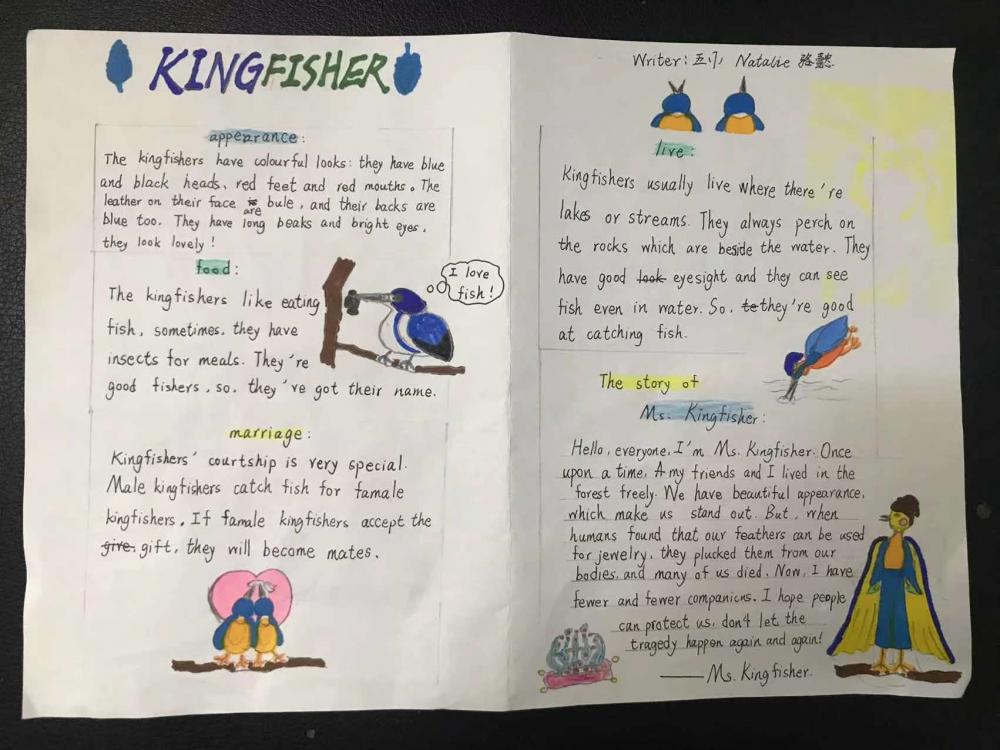 KINGFISHER
appearance:
The kingfishers have colourful looks: they have blue
and black heads, red feet and red mouths. The
leather on their face is are bule, and their backs are
blue too. They have long beaks and bright eyes,
they look lovely!
food:
The kingfishers like eating
fish, sometimes, they have
insects for meals. They're
good fishers, so, they've got their name.
I love
fish!
marriage:
Kingfishers' courtship is very special.
Male kingfishers catch fish for famale
kingfishers. If famale kingfishers accept the
give, gift, they will become mates.
Writer: 五(1) Natalie 骆懿
live:
Kingfishers usually live where there're
lakes or streams. They always perch on
the rocks which are beside the water. They
have good look eyesight and they can see
fish even in water. So, te they're good
at catching fish.
The story of
Ms. Kingfisher:
Hello, everyone, I'm Ms. Kingfisher. Once
upon a time, A my friends and I lived in the
forest freely. We have beautiful appearance,
which make us stand out. But, when
humans found that our feathers can be used
for jewelry, they plucked them from our
bodies, and many of us died. Now, I have
fewer and fewer companions. I hope people
can protect us, don't let the
tragedy happen again and again!
——Ms. Kingfisher.